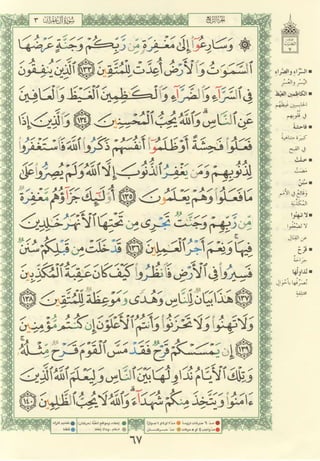 سُورَةُ آلِ عِمْرَانَ ٣
الجُزْءُ الرَّابِعُ
۞ وَسَارِعُوٓا۟ إِلَىٰ مَغْفِرَةٍ مِّن رَّبِّكُمْ وَجَنَّةٍ عَرْضُهَا
ٱلسَّمَٰوَٰتُ وَٱلْأَرْضُ أُعِدَّتْ لِلْمُتَّقِينَ ١٣٣ ٱلَّذِينَ يُنفِقُونَ
فِى ٱلسَّرَّآءِ وَٱلضَّرَّآءِ وَٱلْكَٰظِمِينَ ٱلْغَيْظَ وَٱلْعَافِينَ
عَنِ ٱلنَّاسِ ۗ وَٱللَّهُ يُحِبُّ ٱلْمُحْسِنِينَ ١٣٤ وَٱلَّذِينَ إِذَا
فَعَلُوا۟ فَٰحِشَةً أَوْ ظَلَمُوٓا۟ أَنفُسَهُمْ ذَكَرُوا۟ ٱللَّهَ فَٱسْتَغْفَرُوا۟
لِذُنُوبِهِمْ وَمَن يَغْفِرُ ٱلذُّنُوبَ إِلَّا ٱللَّهُ وَلَمْ يُصِرُّوا۟ عَلَىٰ
مَا فَعَلُوا۟ وَهُمْ يَعْلَمُونَ ١٣٥ أُو۟لَٰٓئِكَ جَزَآؤُهُم مَّغْفِرَةٌ
مِّن رَّبِّهِمْ وَجَنَّٰتٌ تَجْرِى مِن تَحْتِهَا ٱلْأَنْهَٰرُ خَٰلِدِينَ
فِيهَا ۚ وَنِعْمَ أَجْرُ ٱلْعَٰمِلِينَ ١٣٦ قَدْ خَلَتْ مِن قَبْلِكُمْ سُنَنٌ
فَسِيرُوا۟ فِى ٱلْأَرْضِ فَٱنظُرُوا۟ كَيْفَ كَانَ عَٰقِبَةُ ٱلْمُكَذِّبِينَ
١٣٧ هَٰذَا بَيَانٌ لِّلنَّاسِ وَهُدًى وَمَوْعِظَةٌ لِّلْمُتَّقِينَ ١٣٨
وَلَا تَهِنُوا۟ وَلَا تَحْزَنُوا۟ وَأَنتُمُ ٱلْأَعْلَوْنَ إِن كُنتُم مُّؤْمِنِينَ
١٣٩ إِن يَمْسَسْكُمْ قَرْحٌ فَقَدْ مَسَّ ٱلْقَوْمَ قَرْحٌ مِّثْلُهُۥ ۚ
وَتِلْكَ ٱلْأَيَّامُ نُدَاوِلُهَا بَيْنَ ٱلنَّاسِ وَلِيَعْلَمَ ٱللَّهُ ٱلَّذِينَ
ءَامَنُوا۟ وَيَتَّخِذَ مِنكُمْ شُهَدَآءَ ۗ وَٱللَّهُ لَا يُحِبُّ ٱلظَّٰلِمِينَ ١٤٠
السَّرَّاءِ والضَّرَّاءِ
اليُسْرِ والعُسْرِ
الكَاظِمِينَ الغَيْظَ
الحابسين غيظهم
في قلوبهم
فاحشة
خلت
مضت
لا تهنوا
لا تضعفوا
عن القتال
قرح
جراحة
نداولها
٦٧